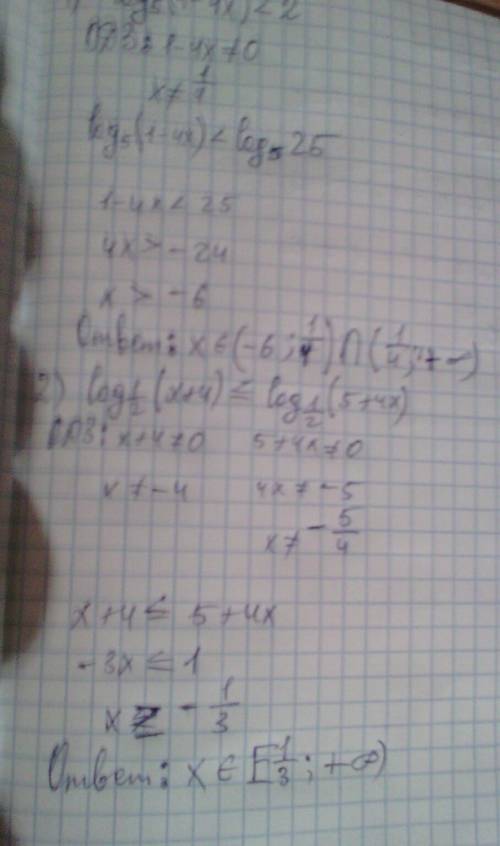 log₅(1-4x) < 2
ОДЗ: 1-4x≠0
x≠ 1/4
log₅(1-4x) < log₅25
1-4x < 25
4x > -24
x > -6
Ответ: x∈(-6; 1/4)∩(1/4; +∞)
2) log_{1/2}(x+4) ≤ log_{1/2}(5+4x)
ОДЗ: x+4≠0 5+4x≠0
x≠-4 4x≠-5
x≠ -5/4
x+4 ≤ 5+4x
-3x ≤ 1
x ≥ -1/3
Ответ: x∈[1/3; +∞)